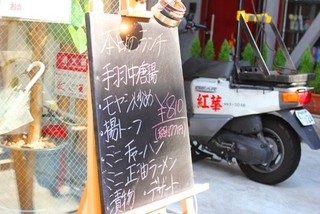 本日のランチ
・手羽中唐揚
・モヤシ炒め
・揚トーフ
¥810
・ミニチャーハン
・ミニ正油ラーメン
・漬物・デザート
紅華